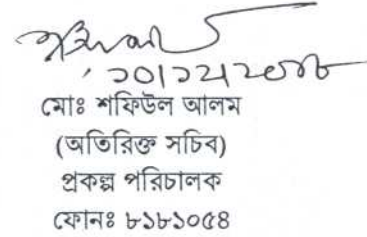 ১০/১২/২০১৮
মোঃ শফিউল আলম
(অতিরিক্ত সচিব)
প্রকল্প পরিচালক
ফোনঃ ৮১৮১০৫৪